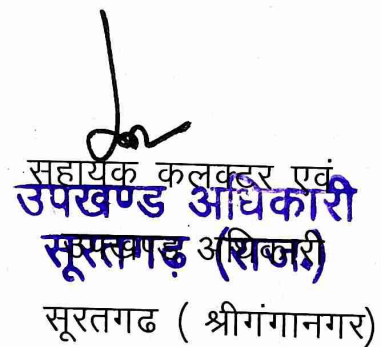 सहायक कलक्टर एवं
उपखण्ड अधिकारी
सूरतगढ़ (राज.)
उपखण्ड अधिकारी
सूरतगढ ( श्रीगंगानगर)